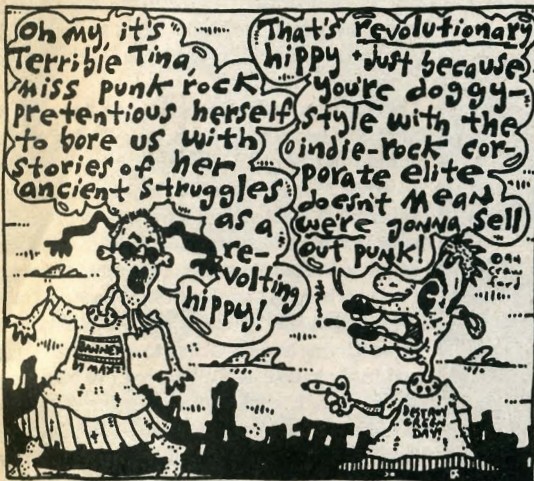 Oh my, it's
Terrible Tina,
miss punk rock
pretentious herself
to bore us with
stories of her
ancient struggles
as a
re-
volting
hippy!
That's revolutionary
hippy + just because
you're doggy-
style with the
indie-rock cor-
porate elite
doesn't mean
we're gonna sell
out punk!
DAN
CRAW
ford
DESTROY
GREEN
DAY!